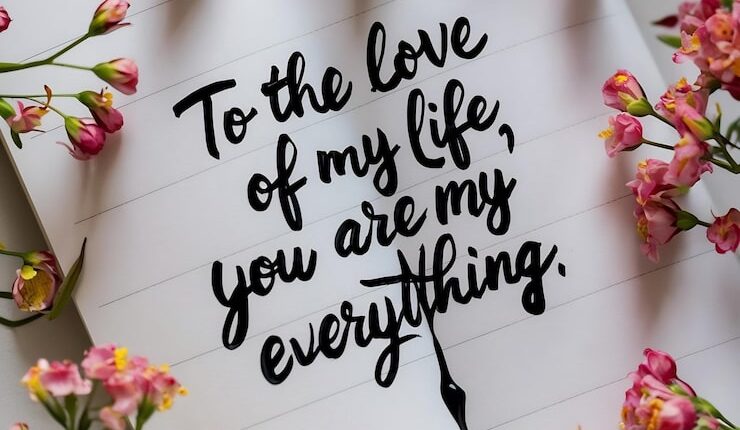 To the love
of my life,
you are my
everything.